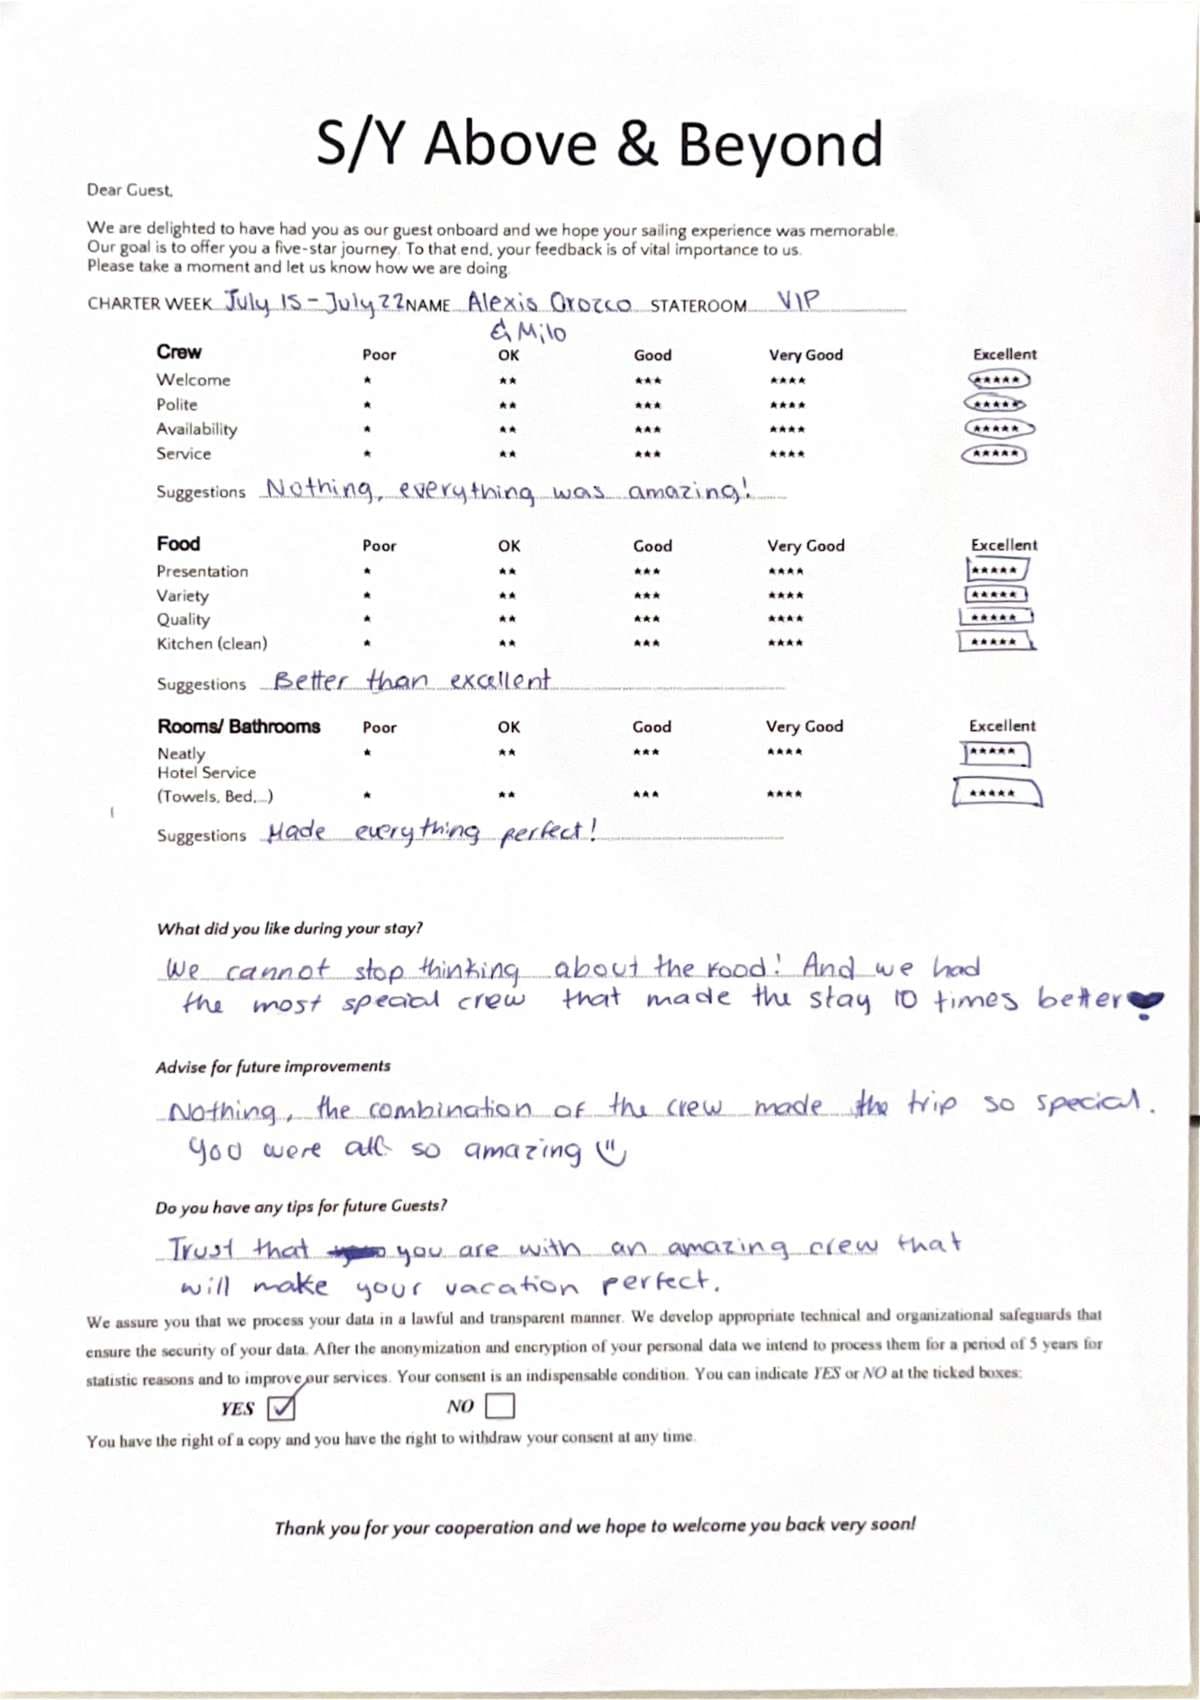 S/Y Above & Beyond
Dear Guest,
We are delighted to have had you as our guest onboard and we hope your sailing experience was memorable.
Our goal is to offer you a five-star journey. To that end, your feedback is of vital importance to us.
Please take a moment and let us know how we are doing.
CHARTER WEEK July 15 - July 22 NAME Alexis Orozco STATEROOM VIP
& Milo
Crew Poor OK Good Very Good Excellent
Welcome * ** *** **** *****
Polite * ** *** **** *****
Availability * ** *** **** *****
Service * ** *** **** *****
Suggestions Nothing, everything was amazing!
Food Poor OK Good Very Good Excellent
Presentation * ** *** **** *****
Variety * ** *** **** *****
Quality * ** *** **** *****
Kitchen (clean) * ** *** **** *****
Suggestions Better than excellent
Rooms/ Bathrooms Poor OK Good Very Good Excellent
Neatly * ** *** **** *****
Hotel Service
(Towels, Bed,...) * ** *** **** *****
Suggestions Made everything perfect!
What did you like during your stay?
We cannot stop thinking about the food! And we had
the most special crew that made the stay 10 times better
Advise for future improvements
Nothing, the combination of the crew made the trip so special.
You were all so amazing
Do you have any tips for future Guests?
Trust that you are with an amazing crew that
will make your vacation perfect.
We assure you that we process your data in a lawful and transparent manner. We develop appropriate technical and organizational safeguards that
ensure the security of your data. After the anonymization and encryption of your personal data we intend to process them for a period of 5 years for
statistic reasons and to improve our services. Your consent is an indispensable condition. You can indicate YES or NO at the ticked boxes:
YES NO
You have the right of a copy and you have the right to withdraw your consent at any time.
Thank you for your cooperation and we hope to welcome you back very soon!